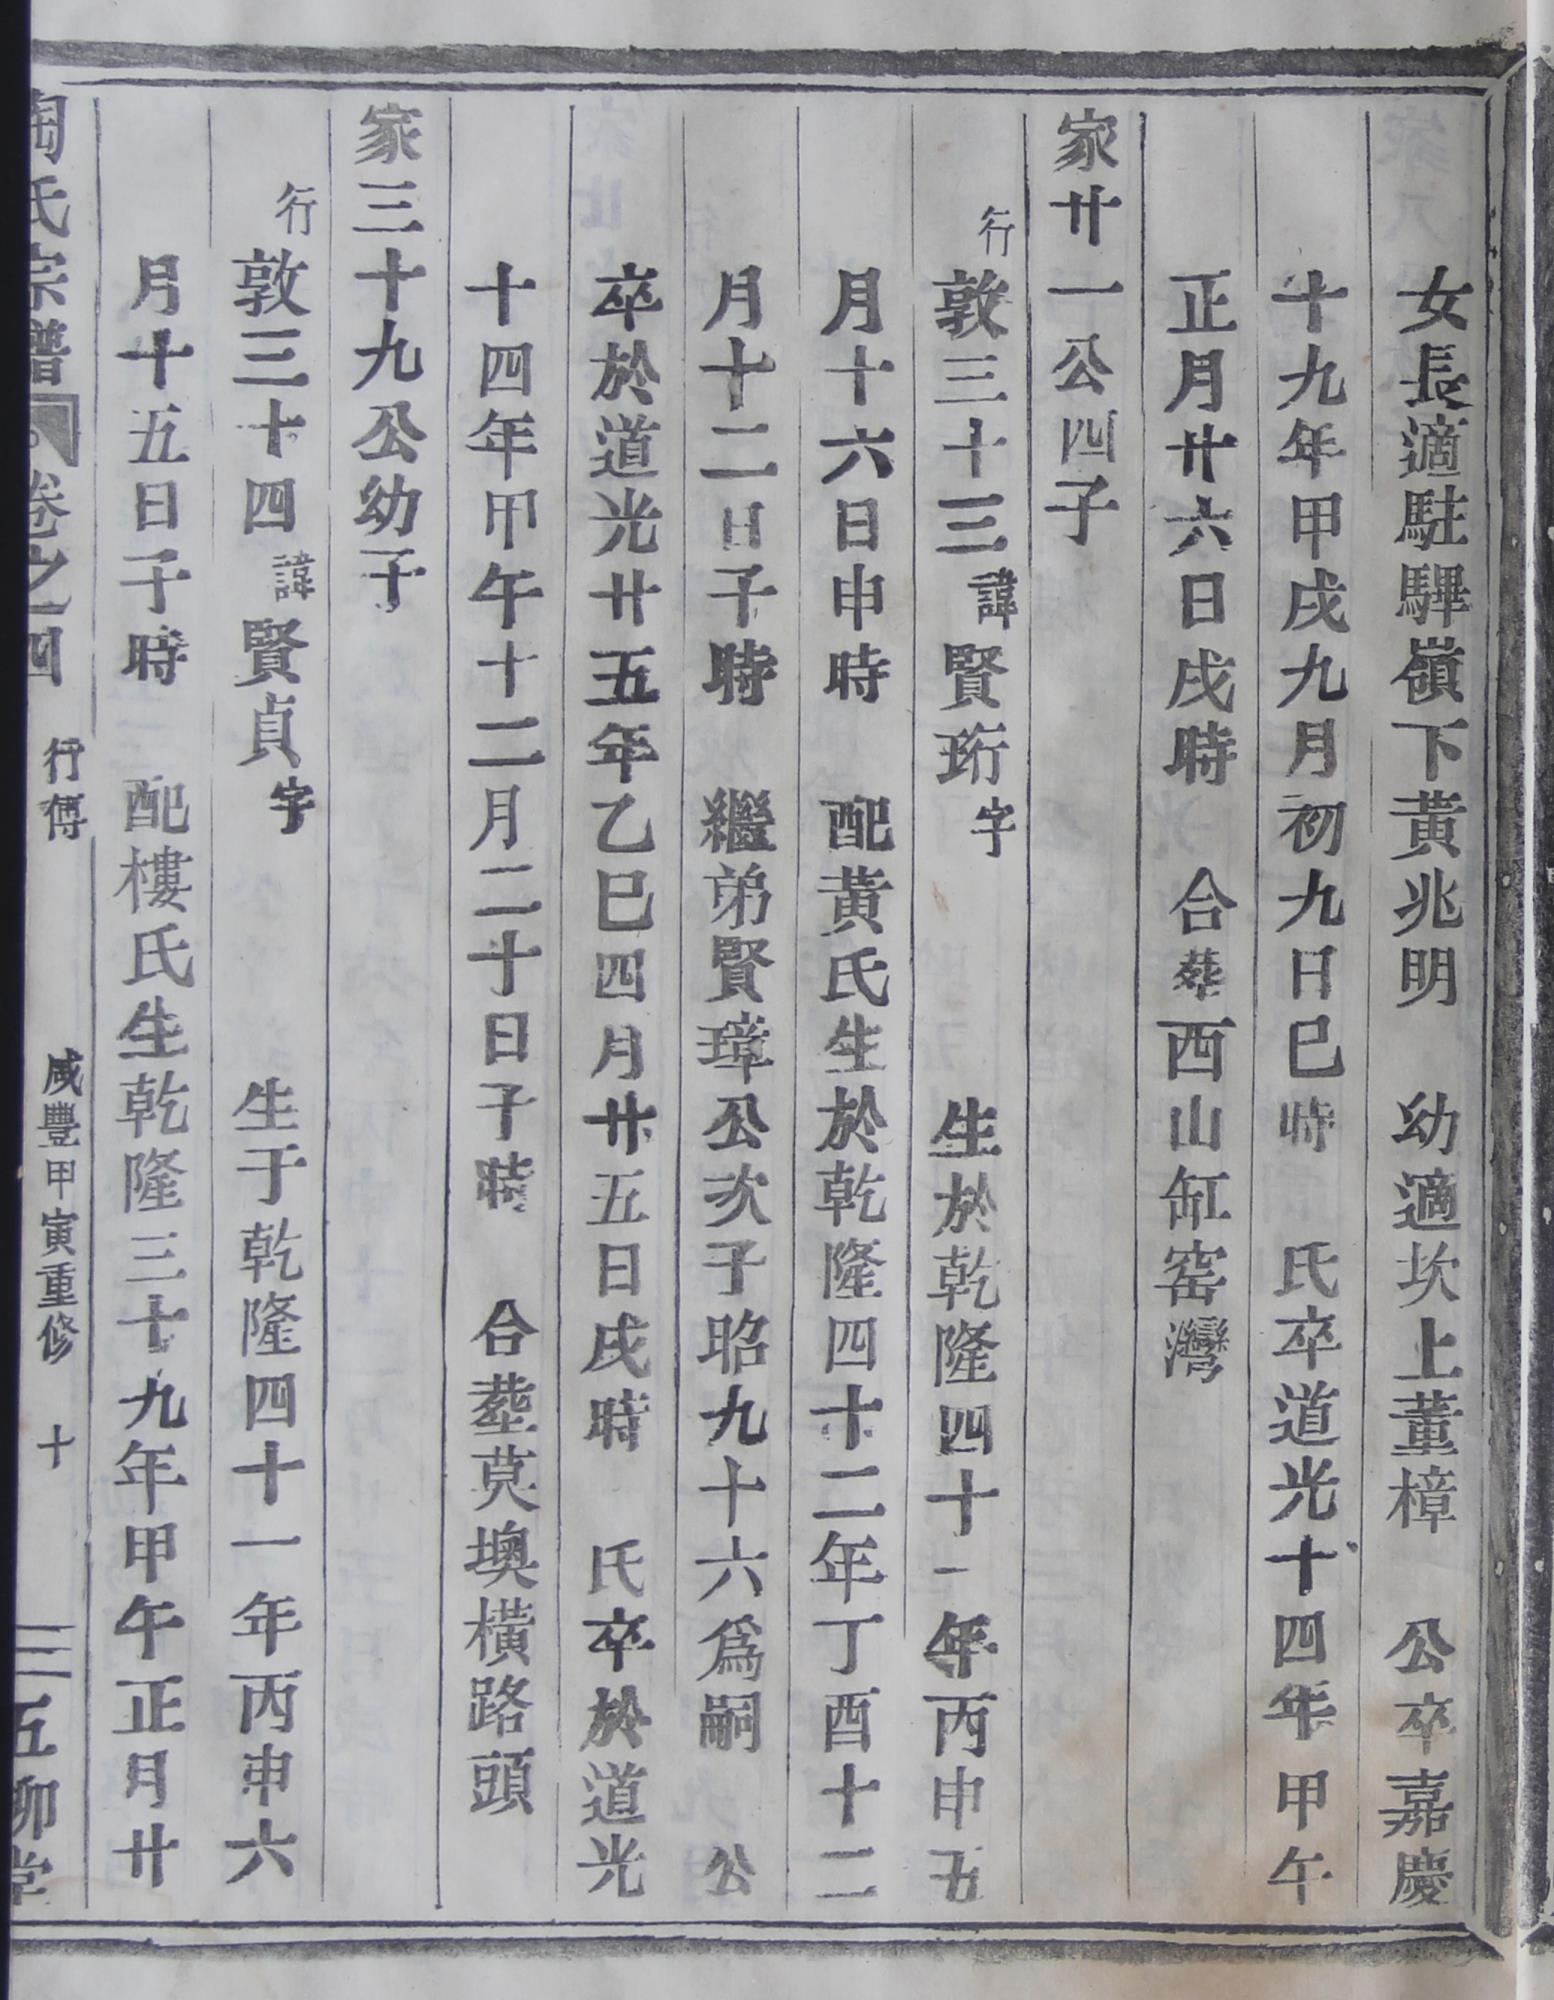 女長適駐驆嶺下黃兆明　幼適坎上董樟　公卒嘉慶
十九年甲戌九月初九日巳時　氏卒道光十四年甲午
正月廿六日戌時　合葬西山缸窑灣
家廿一公四子
行敦三十三諱賢珩字　生於乾隆四十一年丙申五
月十六日申時　配黃氏生於乾隆四十二年丁酉十二
月十二日子時　繼弟賢璋公次子昭九十六爲嗣　公
卒於道光廿五年乙巳四月廿五日戌時　氏卒於道光
十四年甲午十二月二十日子時　合塟莫墺橫路頭
家三十九公幼子
行敦三十四諱賢貞字　生于乾隆四十一年丙申六
月十五日子時　配樓氏生乾隆三十九年甲午正月廿
陶氏宗譜　卷之四　行傳　咸豐甲寅重修　十　五柳堂